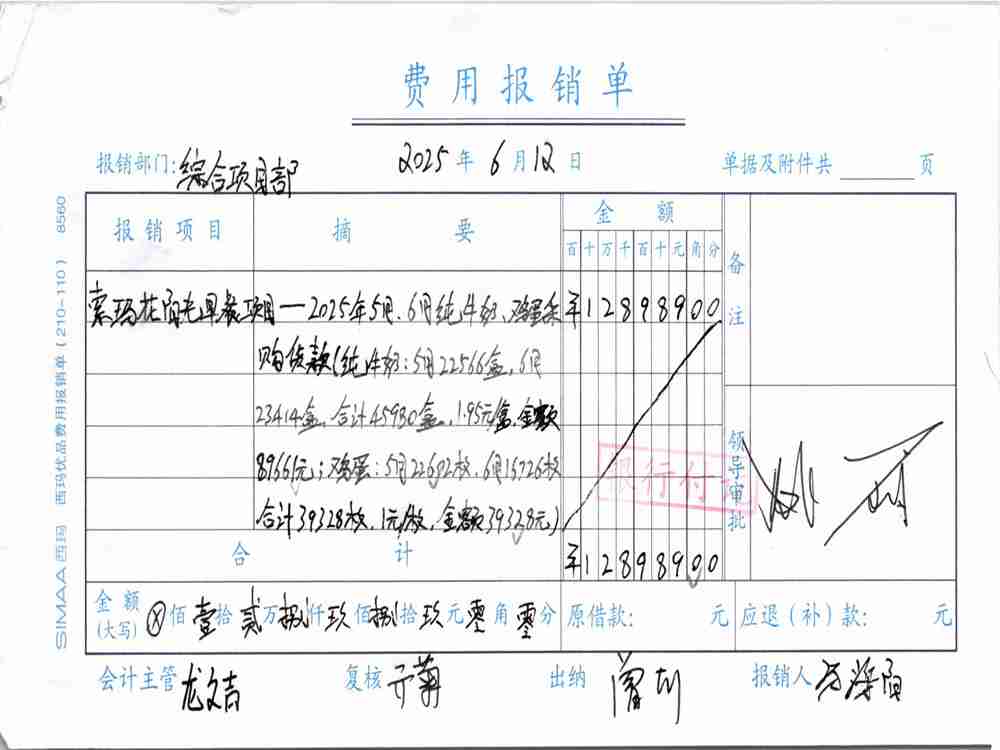 费用报销单
报销部门:综合项目部 2025年6月12日 单据及附件共 页
报销项目 摘要 金额 备注
百十万千百十元角分
索玛花 早餐项目—2025年5月、6月纯牛奶、鸡蛋采 ¥12898900
购货款(纯牛奶:5月22566盒,6月
23414盒,合计45980盒,1.95元/盒,金额
89661元;鸡蛋:5月22602枚,6月16726枚
合计39328枚,1元/枚,金额39328元)
银行付讫
领导审批
合计 ¥12898900
金额(大写) ⊗佰壹拾贰万捌仟玖佰捌拾玖元零角零分 原借款: 元 应退(补)款: 元
会计主管 龙文吉 复核 出纳 报销人
SIMAA西玛 西玛优品费用报销单(210-110) 8560